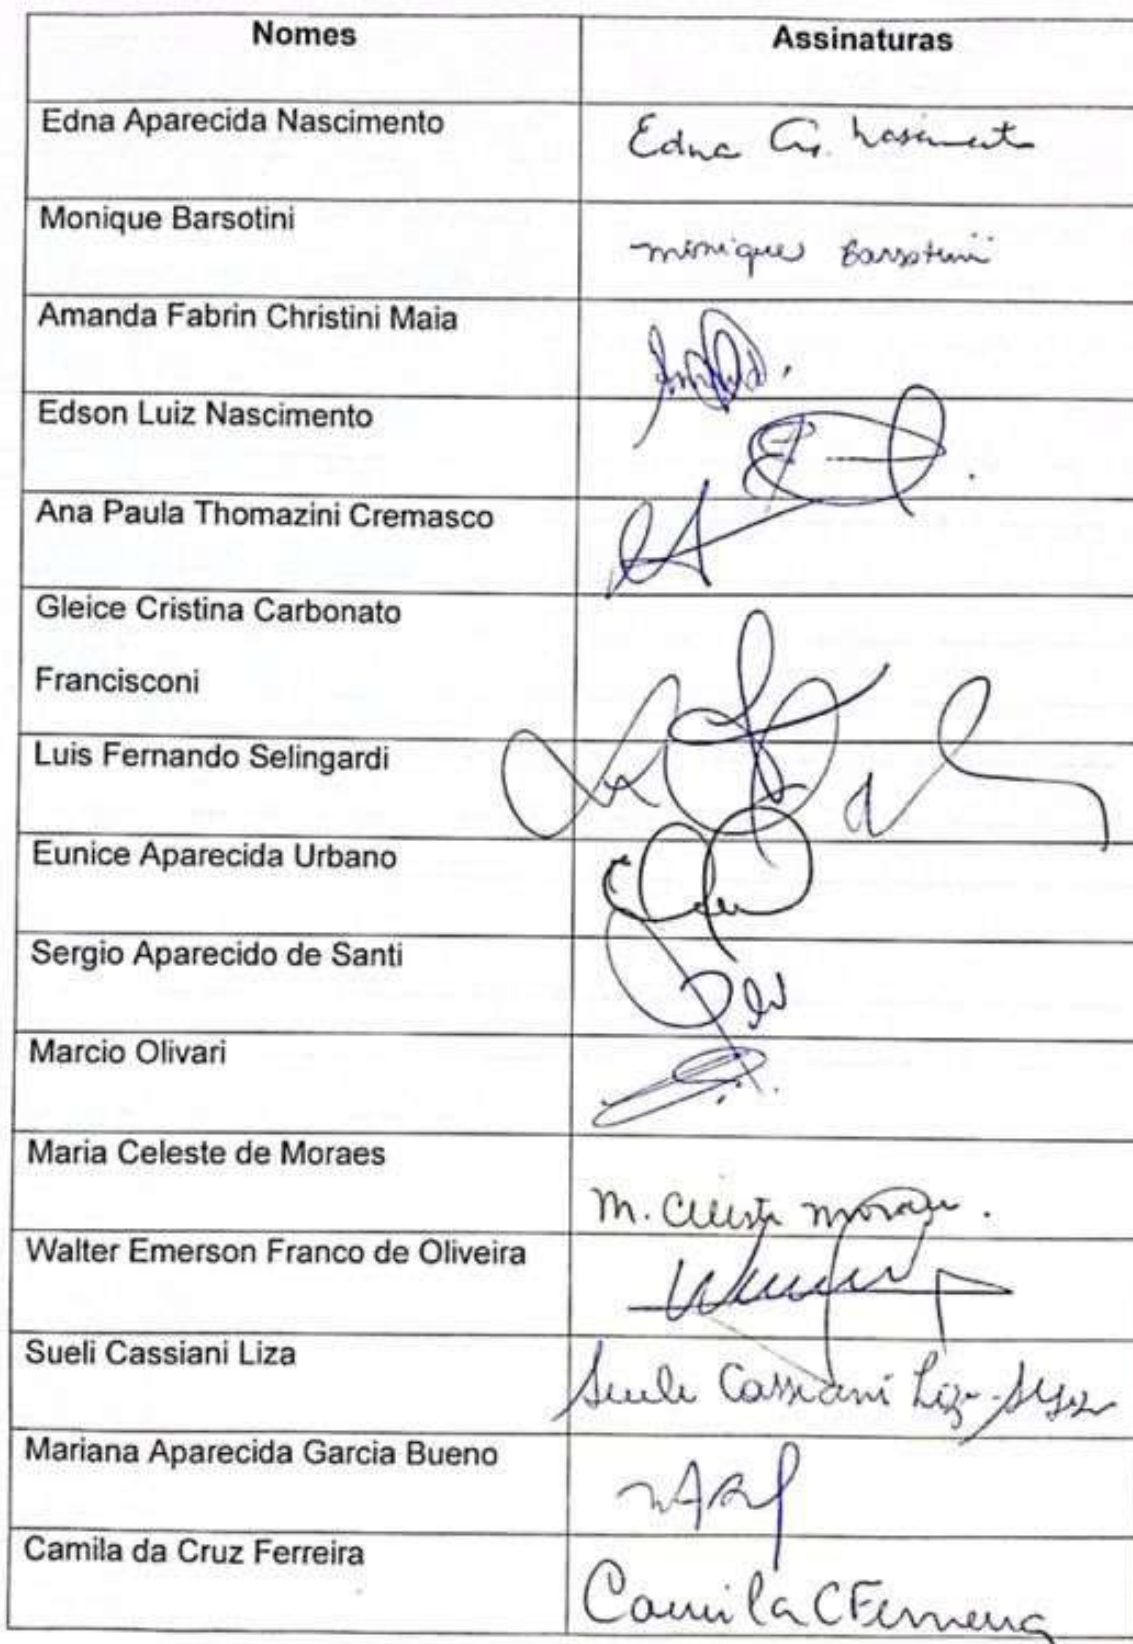 Nomes
Assinaturas
Edna Aparecida Nascimento
Edna Ap. Nascimento
Monique Barsotini
Monique Barsotini
Amanda Fabrin Christini Maia
Edson Luiz Nascimento
Ana Paula Thomazini Cremasco
Gleice Cristina Carbonato
Francisconi
Luis Fernando Selingardi
Eunice Aparecida Urbano
Sergio Aparecido de Santi
Marcio Olivari
Maria Celeste de Moraes
M. Celeste Moraes.
Walter Emerson Franco de Oliveira
Sueli Cassiani Liza
Sueli Cassiani Liza
Mariana Aparecida Garcia Bueno
Camila da Cruz Ferreira
Camila C Ferreira